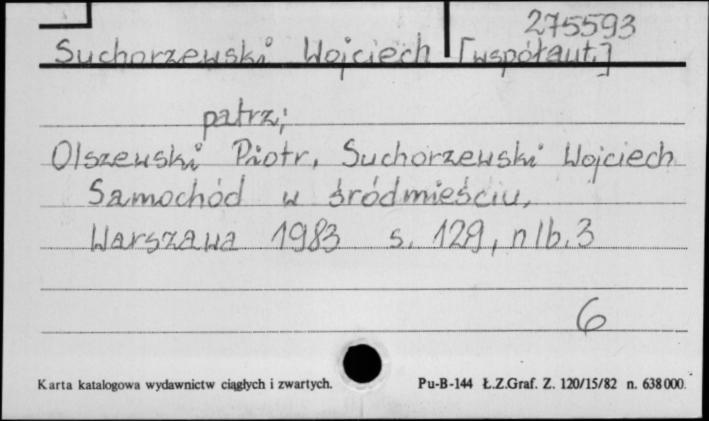 275593
Suchorzewski Wojciech [współaut.]
patrz;
Olszewski Piotr, Suchorzewski Wojciech
Samochód w śródmieściu,
Warszawa 1983 s. 129, nlb. 3
6
Karta katalogowa wydawnictw ciągłych i zwartych. Pu-B-144 Ł.Z.Graf. Z. 120/15/82 n. 638000.